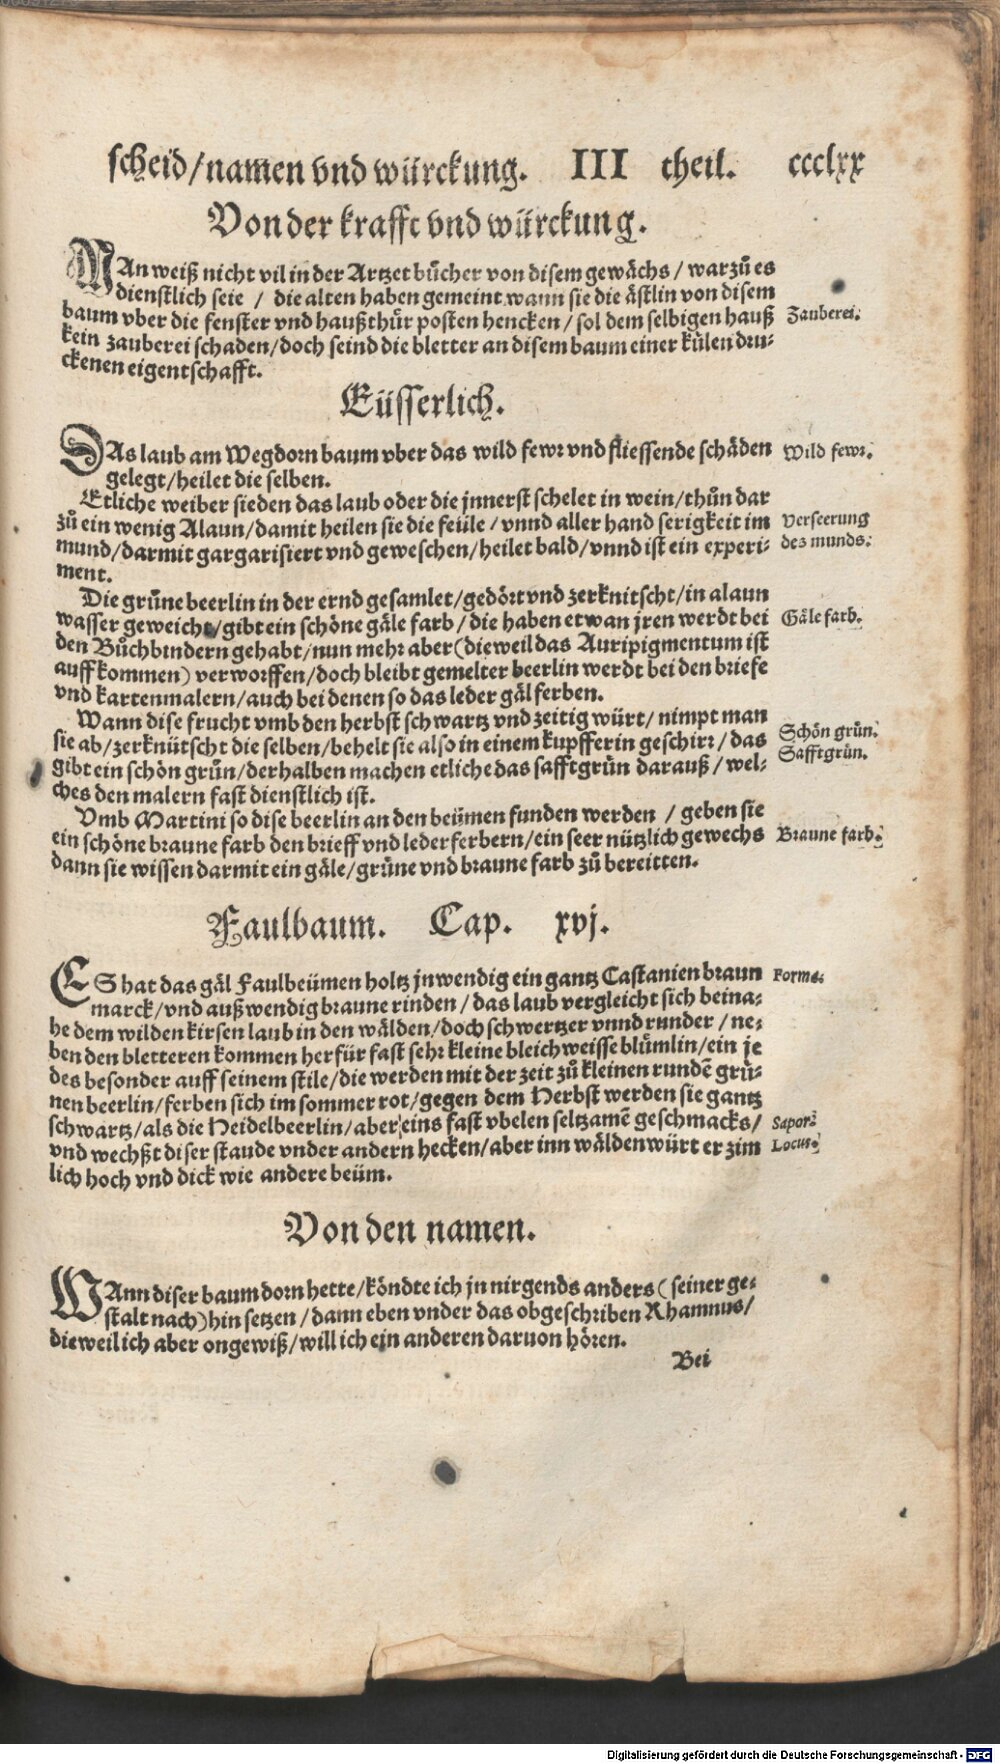 scheid/namen vnd würckung. III theil. ccclxx
Von der krafft vnd würckung.
MAn weiß nicht vil in der Artzet bůcher von disem gewächs / warzů es
dienstlich seie / die alten haben gemeint wann sie die ästlin von disem
baum vber die fenster vnd haußthür posten hencken / sol dem selbigen hauß
Zauberei.
kein zauberei schaden/doch seind die bletter an disem baum einer külen dru⸗
ckenen eigentschafft.
Eüsserlich.
DAs laub am Wegdornbaum vber das wild fewr vnd fliessende schäden
Wild fewr.
gelegt/heilet die selben.
Etliche weiber sieden das laub oder die jnnerst schelet in wein/thůn dar
zů ein wenig Alaun/damit heilen sie die feüle / vnnd aller hand serigkeit im
Verseerung
mund/darmit gargarisiert vnd geweschen/heilet bald/vnnd ist ein experi⸗
des munds.
ment.
Die grüne beerlin in der ernd gesamlet/gedört vnd zerknitscht/in alaun
wasser geweicht/gibt ein schöne gäle farb / die haben etwan jren werdt bei
Gäle farb.
den Bůchbindern gehabt/nun mehr aber (dieweil das Auripigmentum ist
auffkommen) verworffen/doch bleibt gemelter beerlin werdt bei den briefe
vnd kartenmalern/auch bei denen so das leder gäl ferben.
Wann dise frucht vmb den herbst schwartz vnd zeitig würt/ nimpt man
Schön grün.
sie ab/zerknütscht die selben/behelt sie also in einem kupfferin geschirr / das
Safftgrün.
gibt ein schön grün/derhalben machen etliche das safftgrün darauß / wel⸗
ches den malern fast dienstlich ist.
Vmb Martini so dise beerlin an den beümen funden werden / geben sie
ein schöne braune farb den brieff vnd lederferbern/ein seer nützlich gewechs
Braune farb.
dann sie wissen darmit ein gäle/grüne vnd braune farb zů bereitten.
Faulbaum. Cap. xvj.
ES hat das gäl Faulbeümen holtz jnwendig ein gantz Castanien braun
Forma.
marck/vnd außwendig braune rinden / das laub vergleicht sich beina⸗
he dem wilden kirsen laub in den wälden/doch schwertzer vnnd runder / ne⸗
ben den bletteren kommen herfür fast sehr kleine bleichweisse blümlin/ein je
des besonder auff seinem stile/die werden mit der zeit zů kleinen rundē grü⸗
nen beerlin/ferben sich im sommer rot/gegen dem Herbst werden sie gantz
schwartz/als die Heidelbeerlin/aber eins fast vbelen seltzamē geschmacks/
Sapor.
vnd wechßt diser staude vnder andern hecken/aber inn wälden würt er zim
Locus.
lich hoch vnd dick wie andere beüm.
Von den namen.
WAnn diser baum dorn hette/köndte ich jn nirgends anders ( seiner ge⸗
stalt nach) hin setzen / dann eben vnder das obgeschriben Rhamnus/
dieweil ich aber ongewiß/will ich ein anderen daruon hören.
Bei
Digitalisierung gefördert durch die Deutsche Forschungsgemeinschaft - DFG